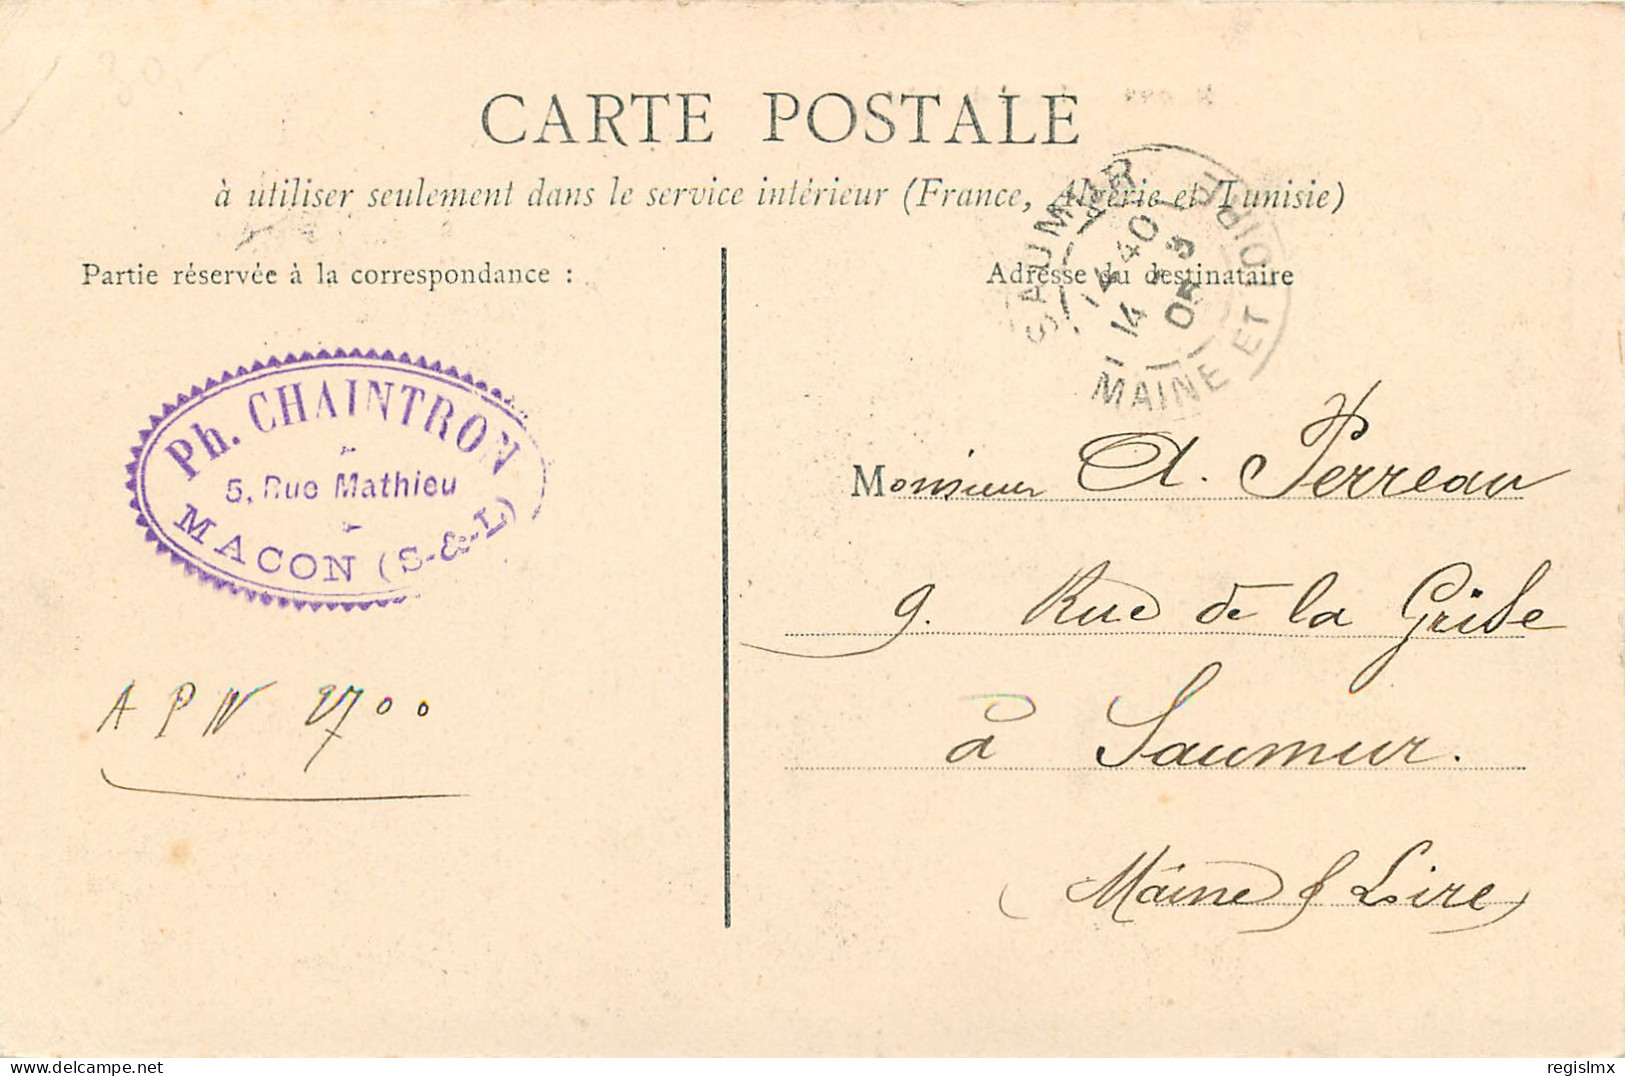 CARTE POSTALE
à utiliser seulement dans le service intérieur (France, Algérie et Tunisie)
Partie réservée à la correspondance :
Adresse du destinataire
SAUMUR
14 40
14 - 9
05
MAINE ET LOIRE
Ph. CHAINTRON
5, Rue Mathieu
MACON (S-&-L)
A P N 2700
Monsieur A. Perreau
9. Rue de la Grise
à Saumur.
(Maine & Loire)
regislmx